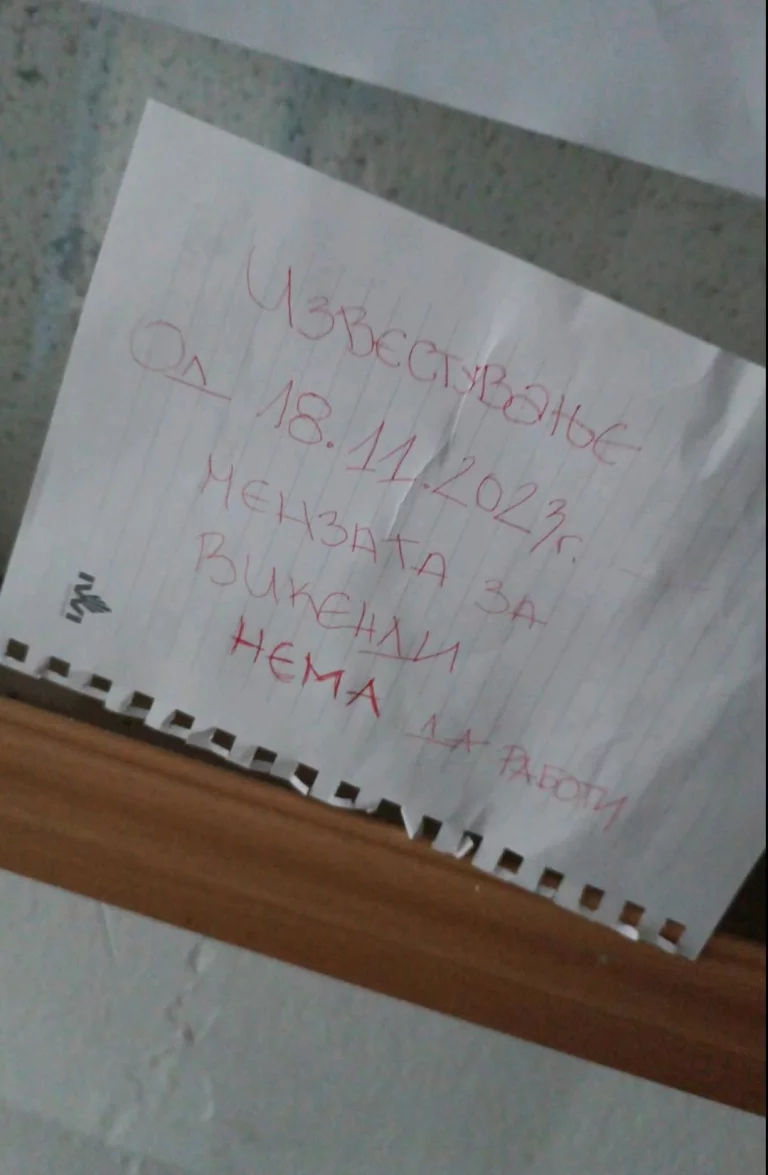 Известување
Од 18.11.2023г.
мензата за
викенди
НЕМА да работи